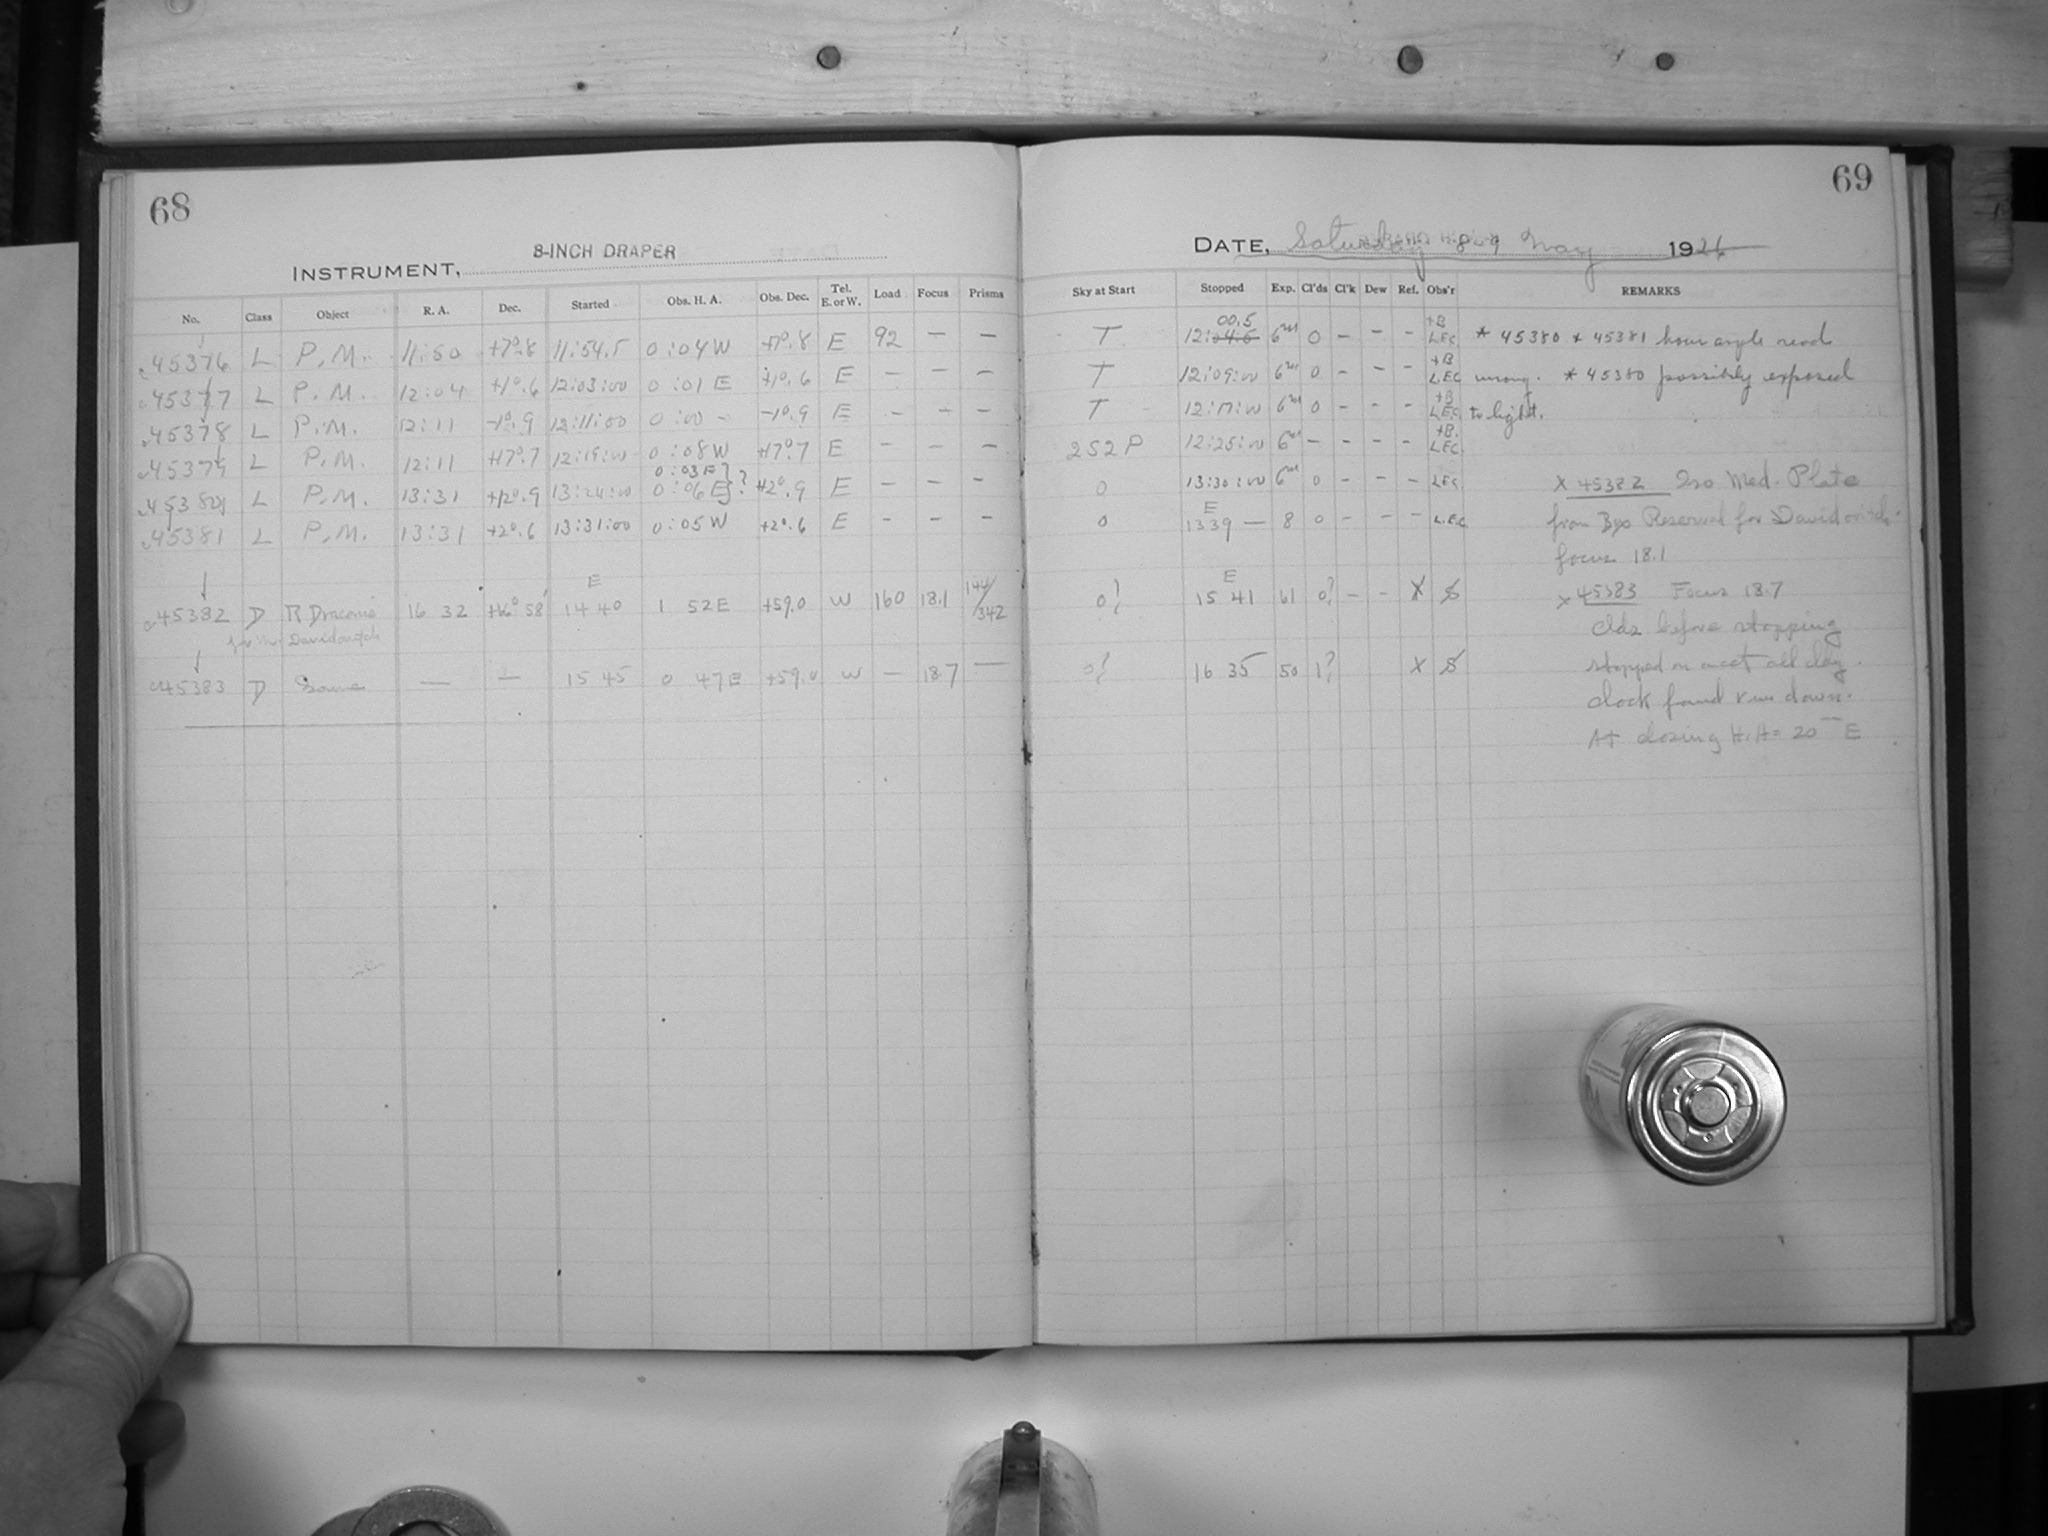 68
8-INCH DRAPER
INSTRUMENT,
No. Class Object R. A. Dec. Started Obs. H. A. Obs. Dec. Tel. E. or W. Load Focus Prisms
45376 L P.M. 11:50 +7°.8 11:54.5 0:04W +7°.8 E 92 — —
45377 L P.M. 12:04 +1°.6 12:03:00 0:01 E +1°.6 E — — —
45378 L P.M. 12:11 -1°.9 12:11:00 0:00 - -1°.9 E - - -
45379 L P.M. 12:11 +17°.7 12:19:00 0:08W +17°.7 E - - -
0:03E } ?
45380 L P.M. 13:31 +2°.9 13:24:00 0:06 E +2°.9 E - - -
45381 L P.M. 13:31 +2°.6 13:31:00 0:05W +2°.6 E - - -
E
45382 D R Draconis 16 32 +66° 58' 14 40 1 52E +59.0 W 160 18.1 144/342
for Mr Davidovitch
45383 D Same — — 15 45 0 47E +59.0 W — 18.7 —
69
DATE, Saturday 8 May 1926
Sky at Start Stopped Exp. Cl'ds Cl'k Dew Ref. Obs'r REMARKS
00.5 +B
T 12:04.6 6m 0 - - - LEC * 45380 + 45381 hour angle read
+B
T 12:09:00 6m 0 - - - LEC wrong. * 45380 possibly exposed
+B
T 12:17:00 6m 0 - - - LEC to light.
+B.
2S2P 12:25:00 6m - - - - LEC
0 13:30:00 6m 0 - - - LEC X 45382 Iso Med. Plate
E
0 1339 — 8 0 - - - L.E.C from Reserved for Davidovitch
focus 18.1
E
0? 15 41 61 0? - - X S X 45383 Focus 18.7
Clds before stopping
0? 16 35 50 1? X S stopped on
clock found run down.
At closing H.A = 20m E